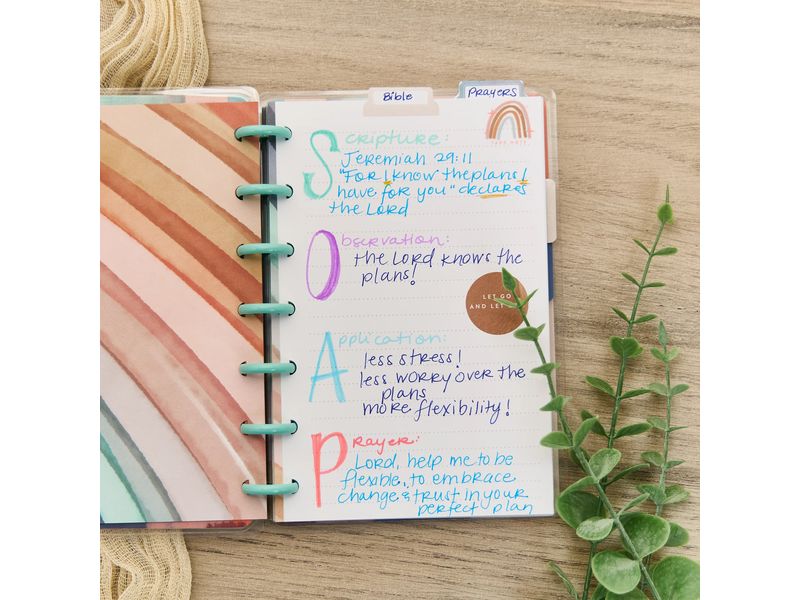 Bible
PRAYERS
Scripture:
Jeremiah 29:11
"For I know the plans I
have for you" declares
the Lord
Observation:
the Lord knows the
plans!
LET GO
AND LET
Application:
less stress!
less worry over the
plans
more flexibility!
Prayer:
Lord, help me to be
flexible, to embrace
change & trust in your
perfect plan